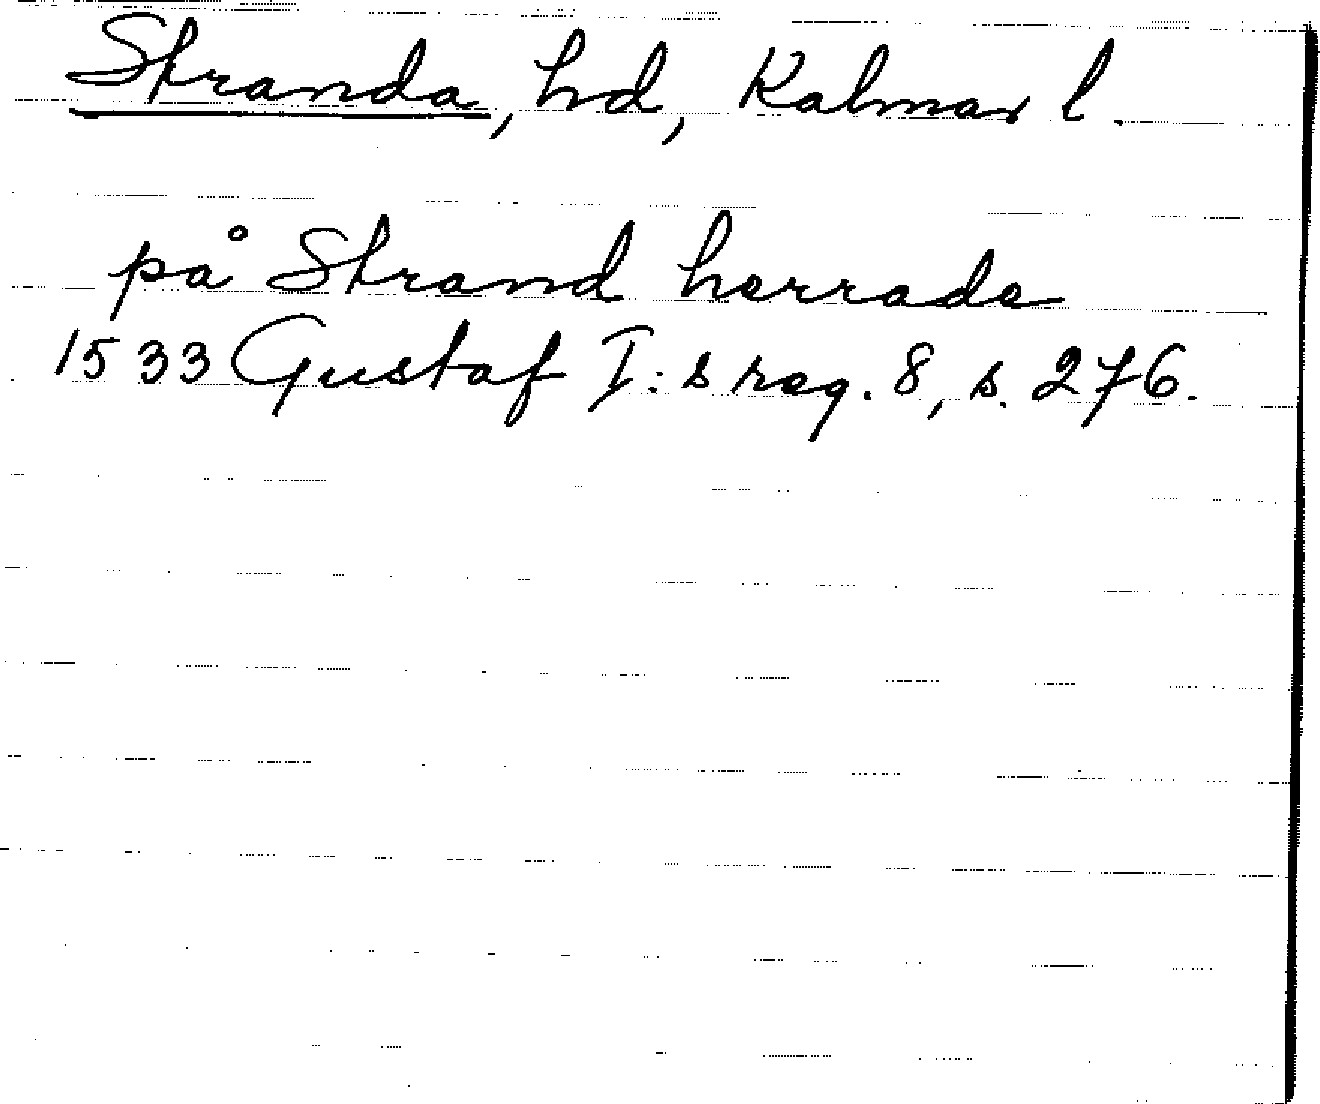 Stranda, hd, Kalmar l.
på Strand herrade
1533 Gustaf I:s reg. 8, s. 276.